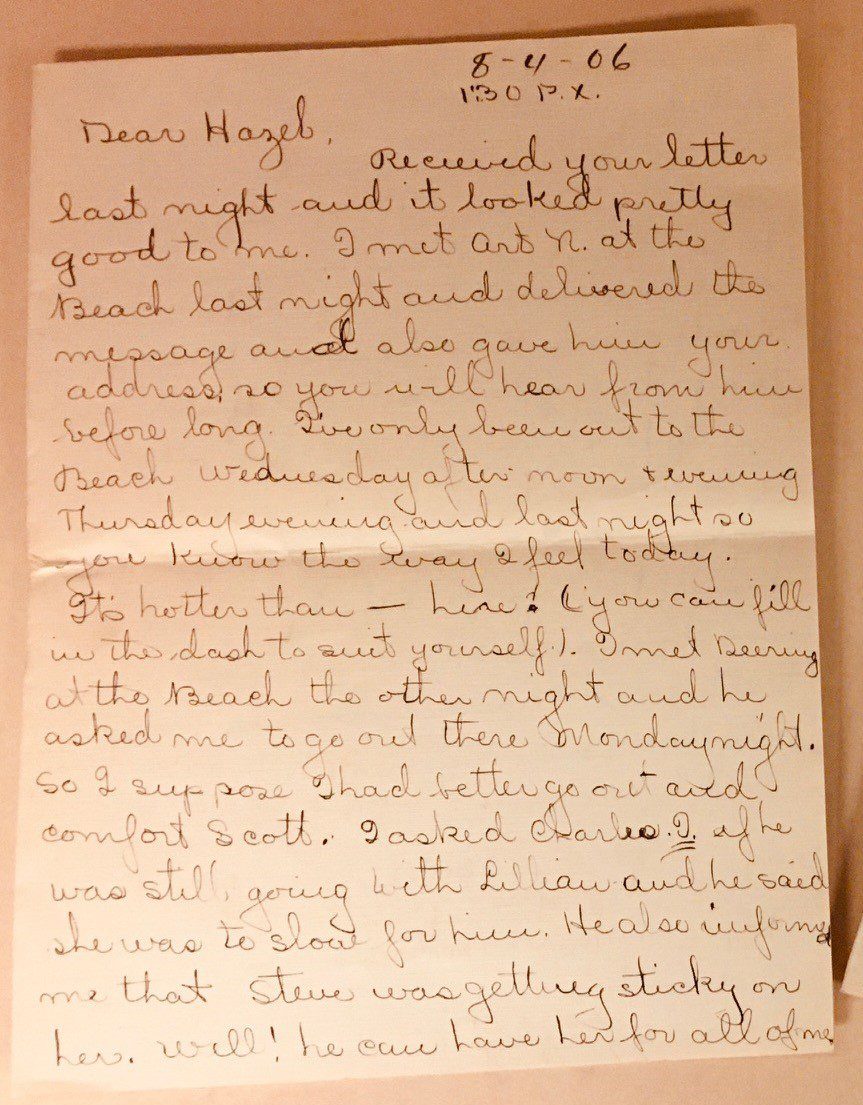 8-4-06
1:30 P.X.
Dear Hazel,
Recieved your letter
last night and it looked pretty
good to me. I met Art N. at the
Beach last night and delivered the
message and also gave him your
address, so you will hear from him
before long. I've only been out to the
Beach Wednesday after noon & evening
Thursday evening and last night so
you know the way I feel today.
It's hotter than — here! (you can fill
in the dash to suit yourself). I met Deering
at the Beach the other night and he
asked me to go out there Monday night.
So I suppose I had better go out and
comfort Scott. I asked Charles I. if he
was still going with Lillian and he said
she was to slow for him. He also informed
me that Steve was getting sticky on
her. Well! he can have her for all of me.